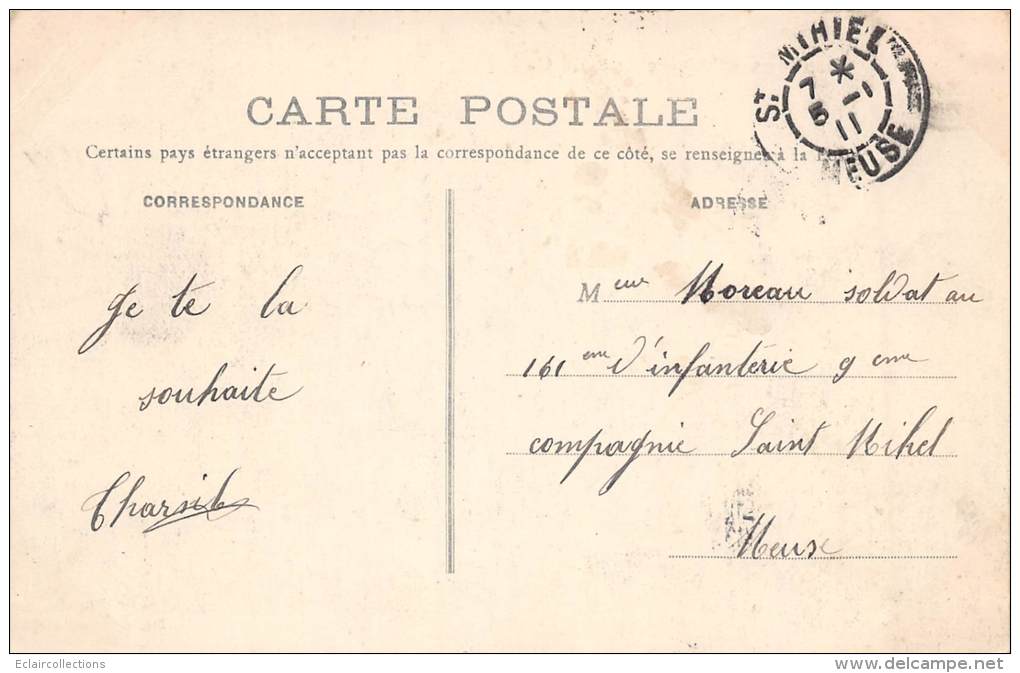 CARTE POSTALE
Certains pays étrangers n'acceptant pas la correspondance de ce côté, se renseigner à la
CORRESPONDANCE
ADRESSE
ST MIHIEL
*
7 -1
5 11
MEUSE
Je te la
souhaite
Meur Moreau soldat au
161 eme d'infanterie 9 eme
compagnie Saint Mihel
Meuse
Eclaircollections
www.delcampe.net